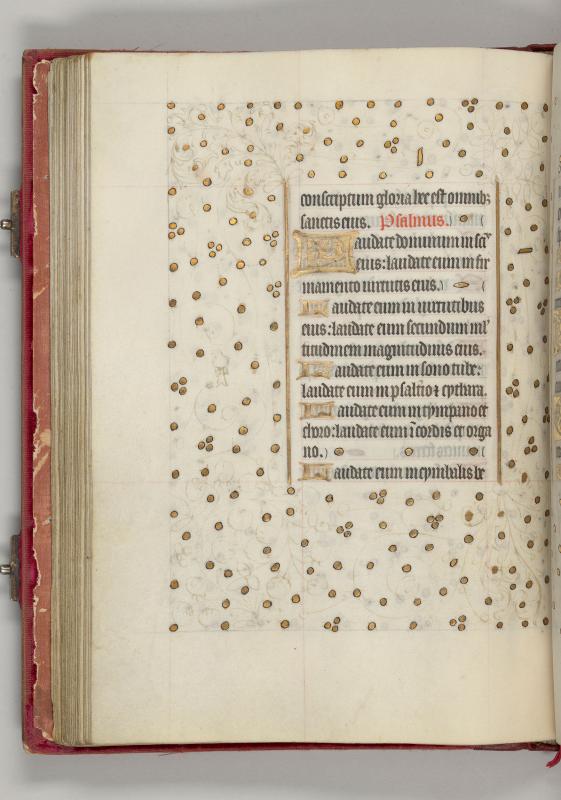 conscriptum gloria hec est omnibꝫ
sanctis eius. Psalmus.
Laudate dominum in sc̄ĩs
eius: laudate eum in fir
mamento uirtutis eius.
Laudate eum in uirtutibus
eius: laudate eum secundum ml̄
titudinem magnitudinis eius.
Laudate eum in sono tube:
laudate eum in psalterio ⁊ cythara.
Laudate eum in tympano et
choro: laudate eum ī cordis et orga
no.
Laudate eum in cymbalis be